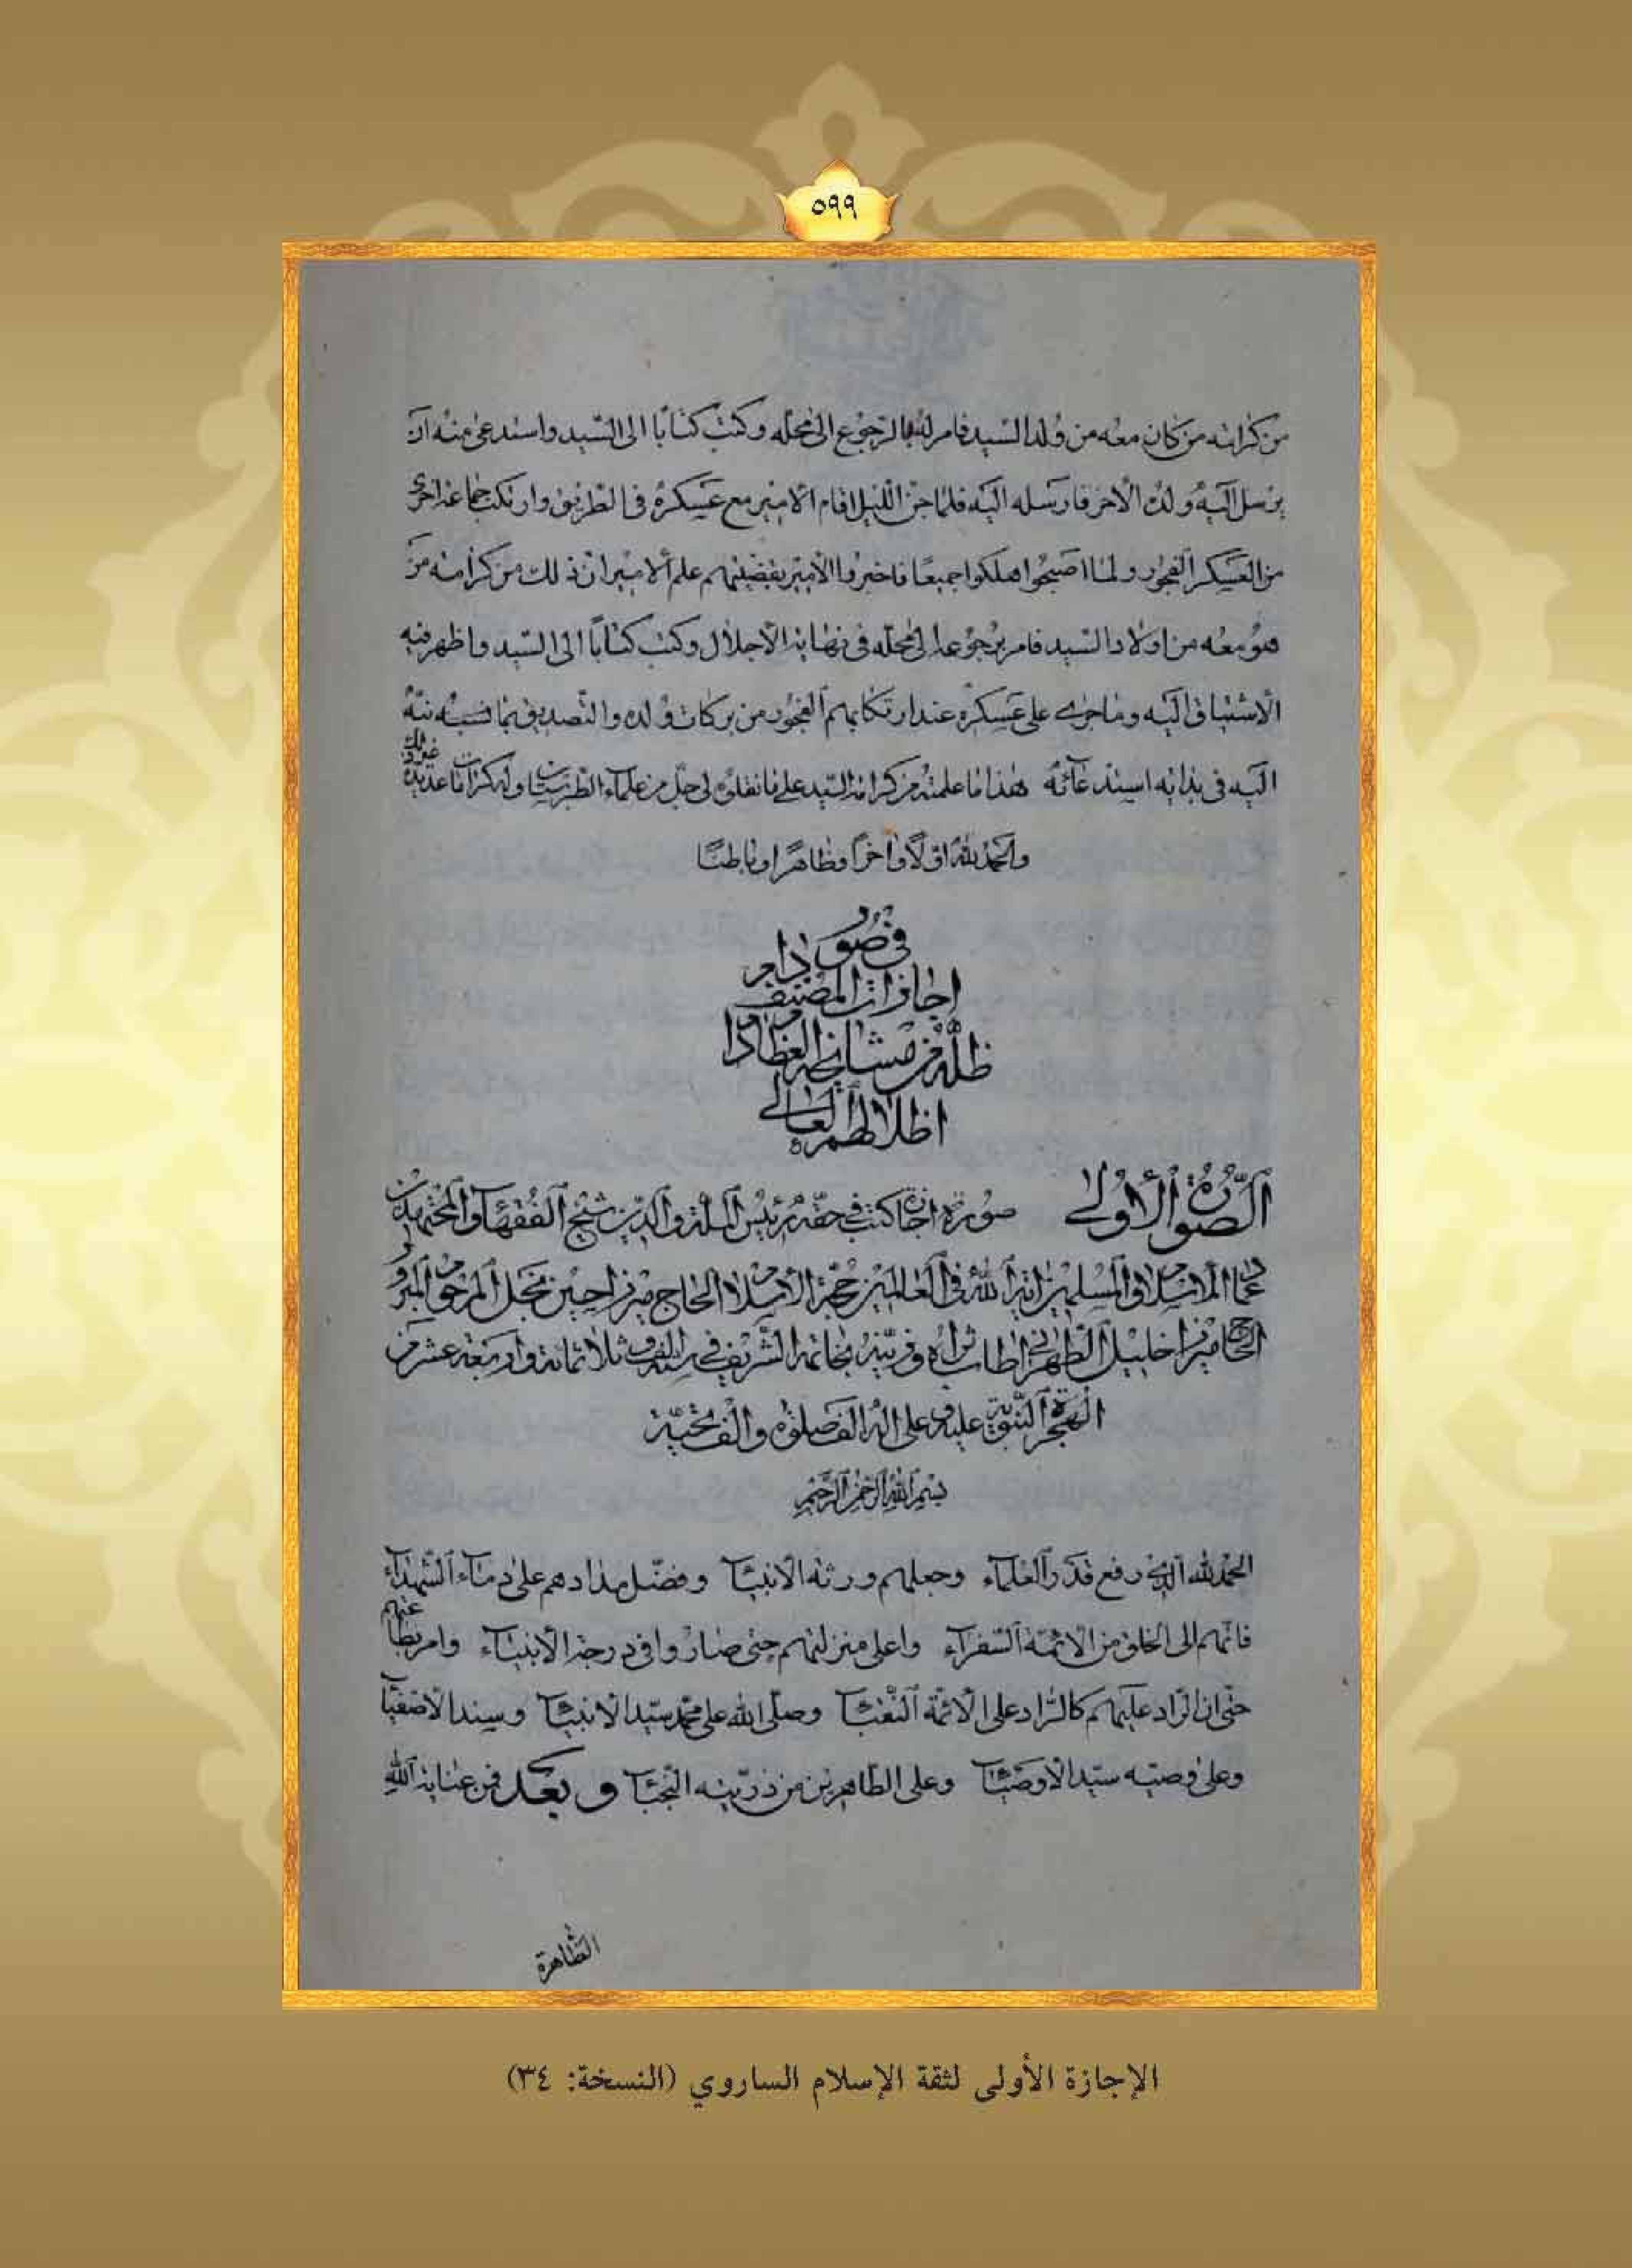 ٥٩٩
من كرامته من كان معه من ولد السيد فامر له بالرجوع الى محله وكتب كتابا الى السيد واستدعى منه ان
يرسل اليه ولده الآخر فارسله اليه فلما جن الليل اقام الامير مع عسكره في الطريق وارتكب جماعة اخرى
من العسكر الفجور ولما اصبحوا اهلكوا جميعا فاخبروا الامير بقضيتهم علم الامير ان ذلك من كرامته من
هو معه من اولاد السيد فامر برجوعه الى محله في نهاية الاجلال وكتب كتابا الى السيد واظهر فيه
الاشتياق اليه وما جرى على عسكره عند ارتكابهم الفجور من بركات ولده والتصديق بما نسبته
اليه في بداية استدعائه هذا ما علمته من كرامة السيد على ما نقلوه لي جل من علماء الطبرستان وله كرامات عديدة
غير ذلك
والحمد لله اولا وآخرا وظاهرا وباطنا
في صور
اجازات المصنف دام
ظله من مشايخه العظام دام
اظلالهم العالي
الصورة الأولى صورة اجازة كتب في حقه رئيس الملة والدين شيخ الفقهاء والمجتهدين
عماد الاسلام والمسلمين اية الله في العالمين حجة الاسلام الحاج ميرزا حسين نجل المرحوم المبرور
الحاج ميرزا خليل الطهراني اطاب ثراه وزينه بخاتمه الشريف في سنة الف وثلاثمائة واربعة عشر من
الهجرة النبوية عليه وعلى اله الف صلوة والف تحية
بسم الله الرحمن الرحيم
الحمد لله الذي رفع قدر العلماء وجعلهم ورثة الانبياء وفضل مدادهم على دماء الشهداء
فانهم الى الخلق من الائمة السفراء واعلى منزلتهم حتى صاروا في درجة الانبياء وامر
حتى ان الراد عليهم كالراد على الائمة النقباء وصلى الله على محمد سيد الانبياء وسيد الاصفياء
وعلى وصيه سيد الاوصياء وعلى الطاهرين من ذريته النجباء وبعد فمن عناية الله
الظاهرة
الإجازة الأولى لثقة الإسلام الساروي (النسخة: ٣٤)